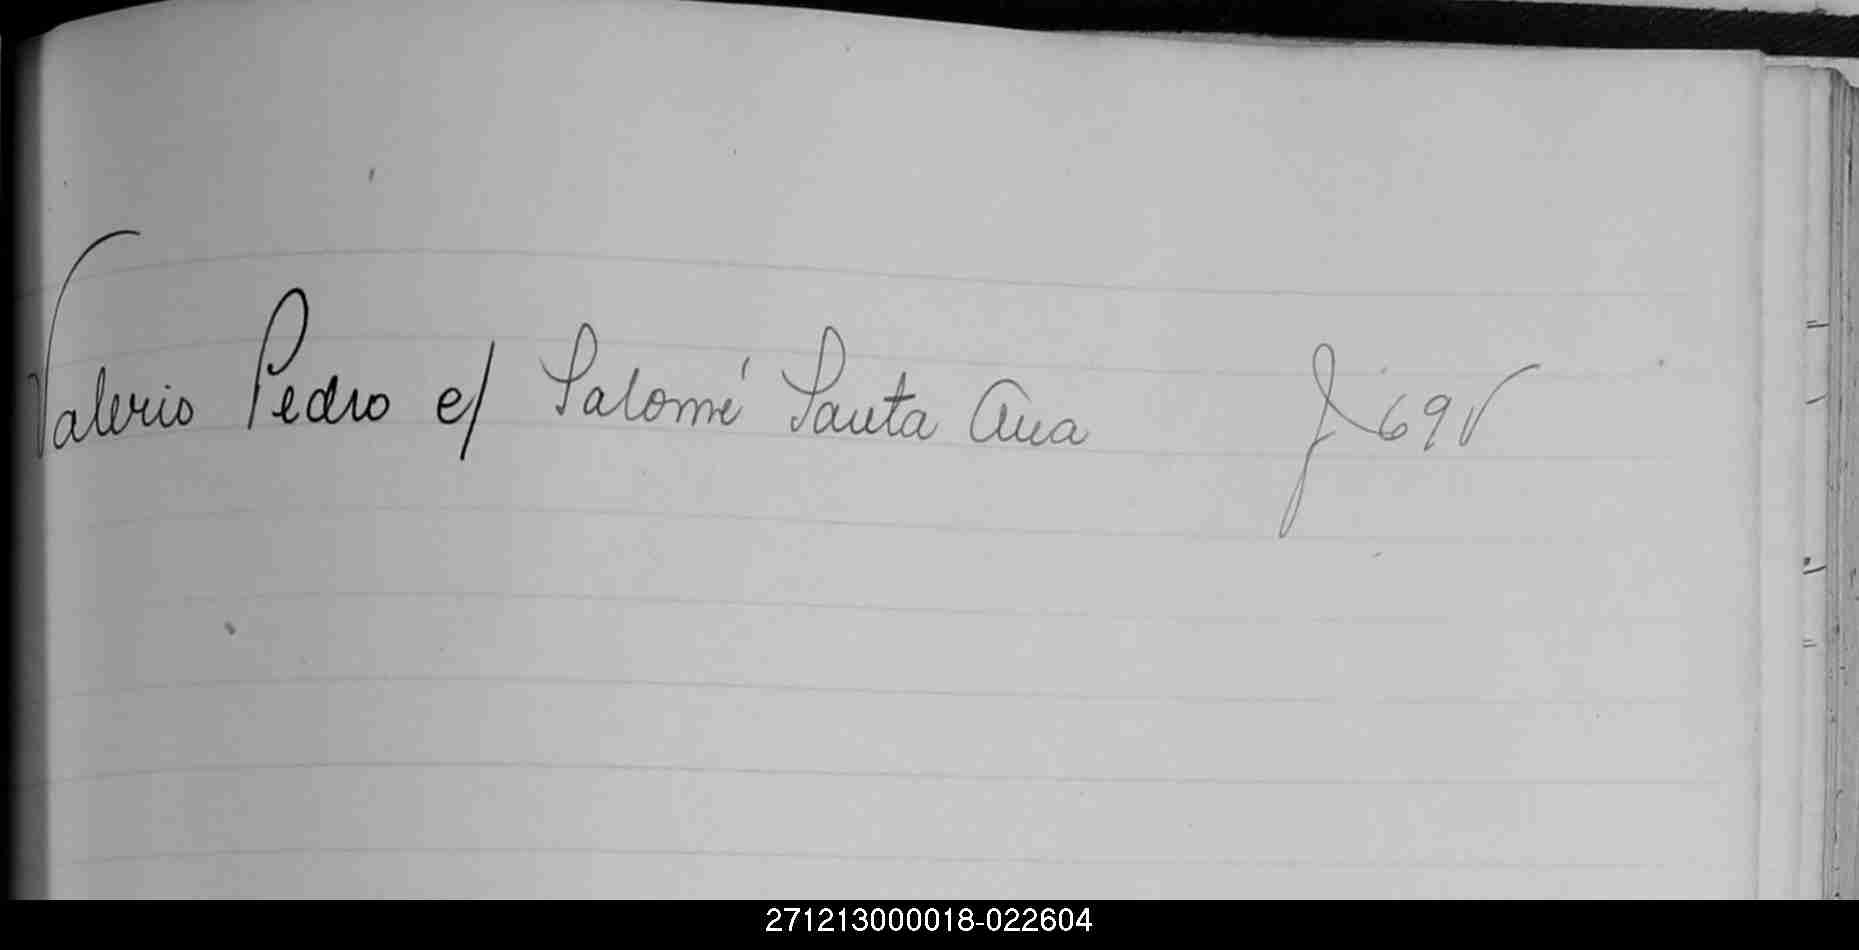 Valerio Pedro c/ Salomé Santa Ana f 69v
271213000018-022604